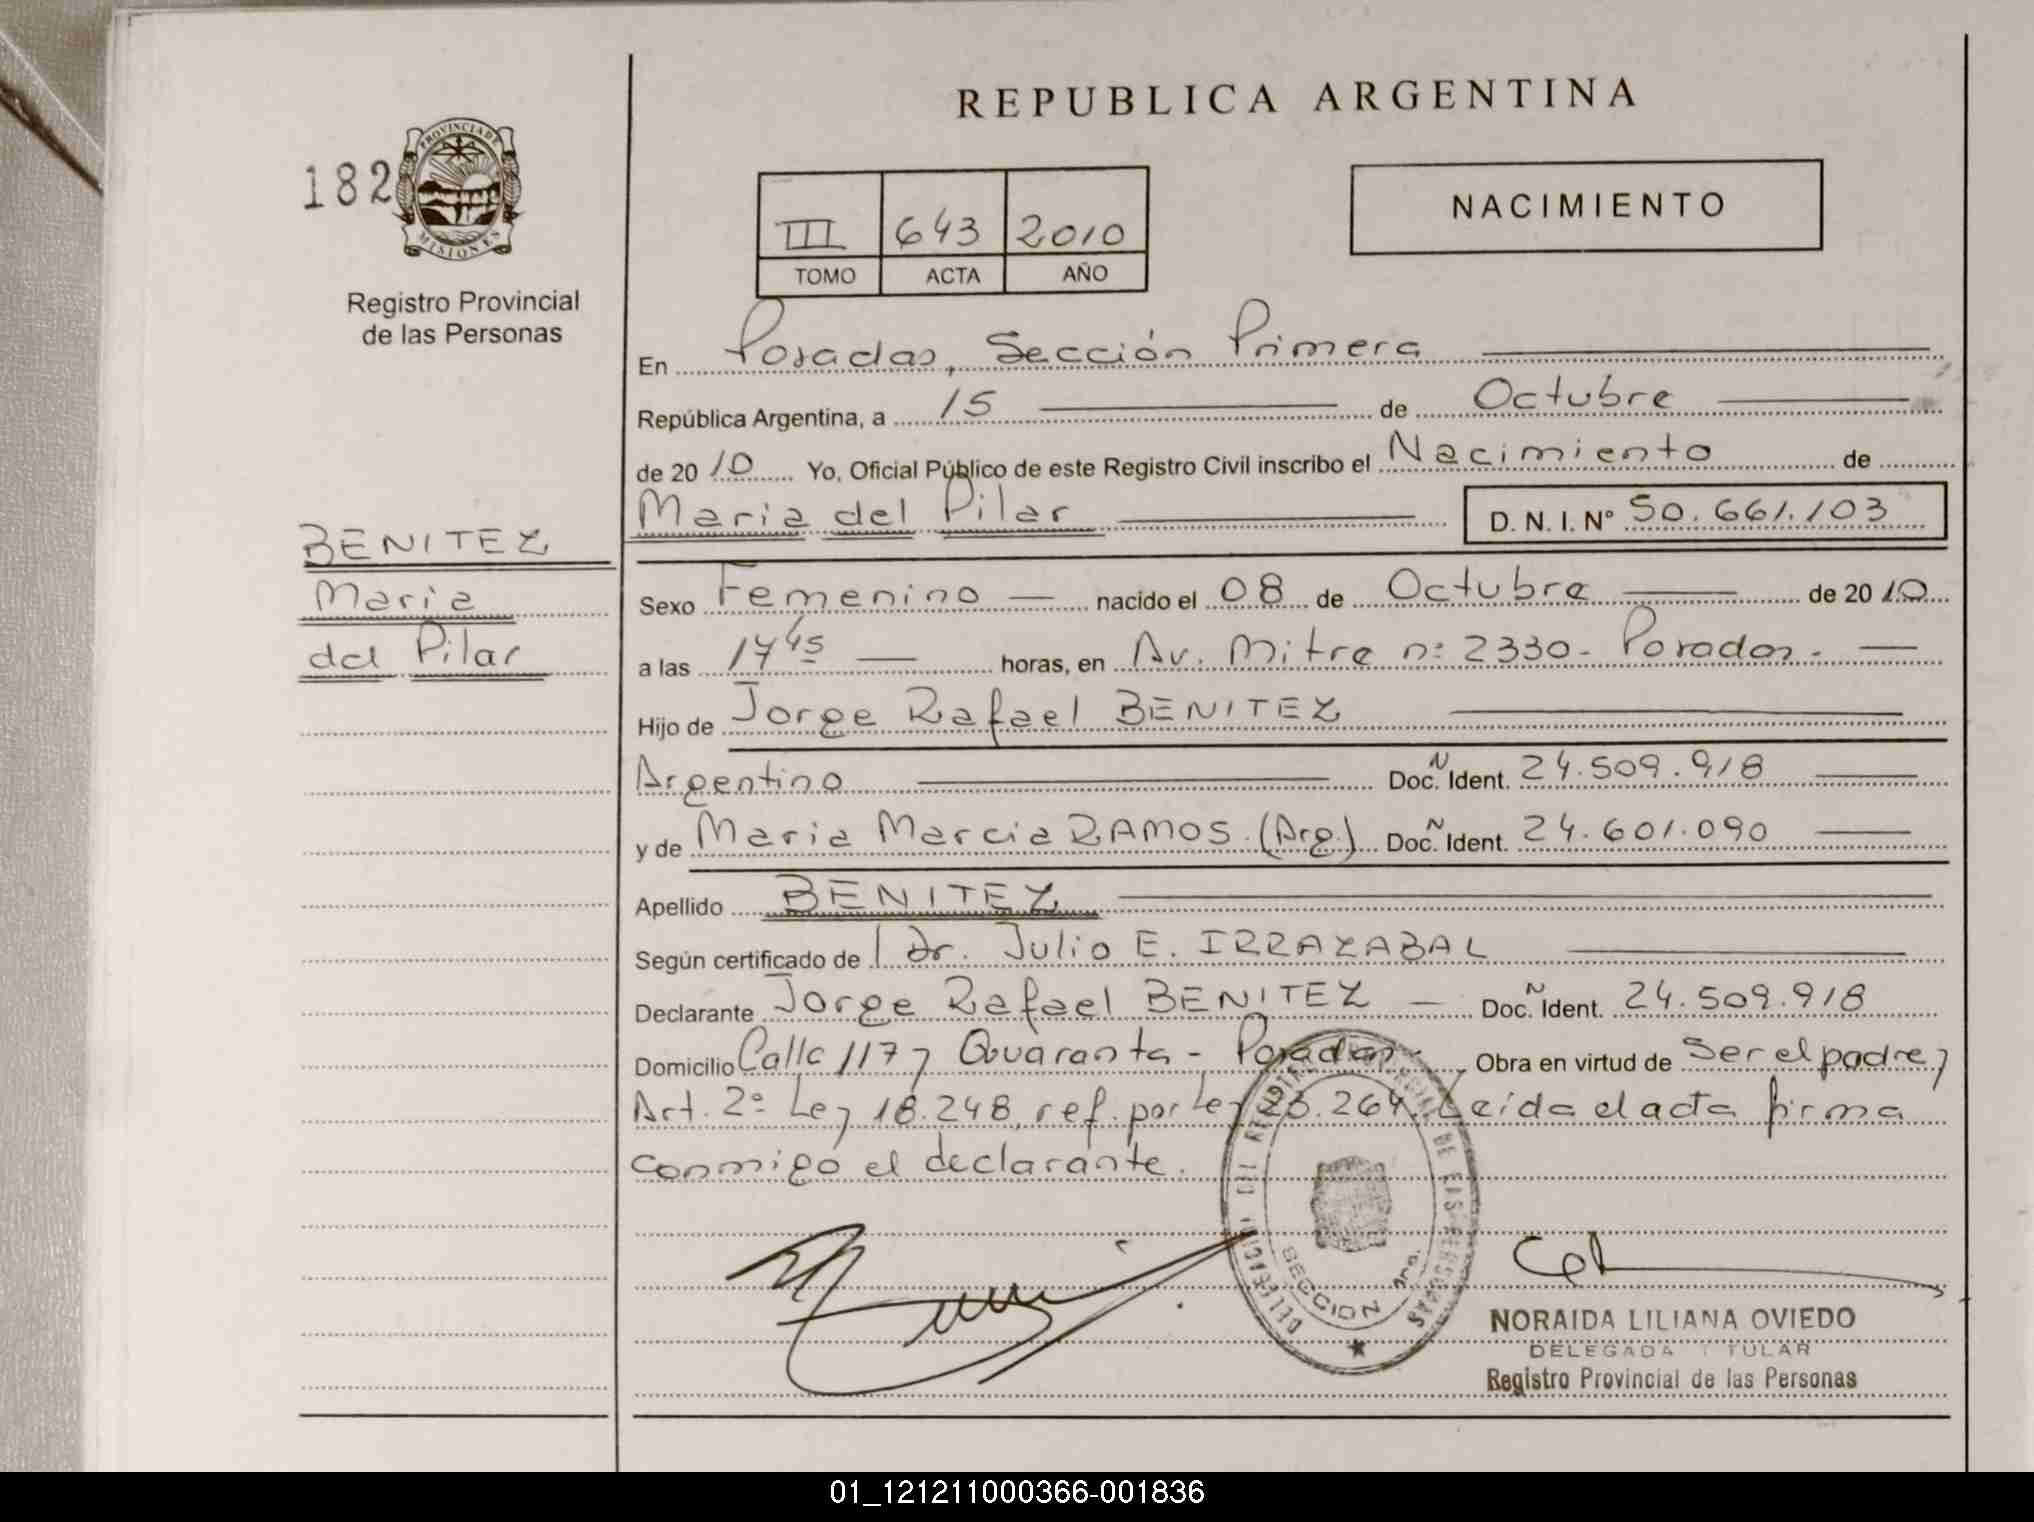 REPUBLICA ARGENTINA
182
PROVINCIA DE
MISIONES
Registro Provincial
de las Personas
NACIMIENTO
III 643 2010
TOMO ACTA AÑO
En Posadas, Sección Primera
República Argentina, a 15 de Octubre
de 2010 Yo, Oficial Público de este Registro Civil inscribo el Nacimiento de
Maria del Pilar D. N. I. N° 50.661.103
BENITEZ
Maria
del Pilar
Sexo Femenino nacido el 08 de Octubre de 2010
a las 17 45 horas, en Av. Mitre n: 2330- Posadas.
Hijo de Jorge Rafael BENITEZ
Argentino Doc. N Ident. 24.509.918
y de Maria Marcia RAMOS (Arg.) Doc. N Ident. 24.601.090
Apellido BENITEZ
Según certificado de Dr. Julio E. IRRAZABAL
Declarante Jorge Rafael BENITEZ Doc. N Ident. 24.509.918
Domicilio Calle 117 y Quaranta - Posadas. Obra en virtud de Ser el padre y
Art. 2° Ley 18.248, ref. por Ley 23.264. Leída el acta firma
conmigo el declarante.
DELEGACION DEL REGISTRO PROVINCIAL DE LAS PERSONAS
SECCION 1ra.
NORAIDA LILIANA OVIEDO
DELEGADA TITULAR
Registro Provincial de las Personas
01_121211000366-001836